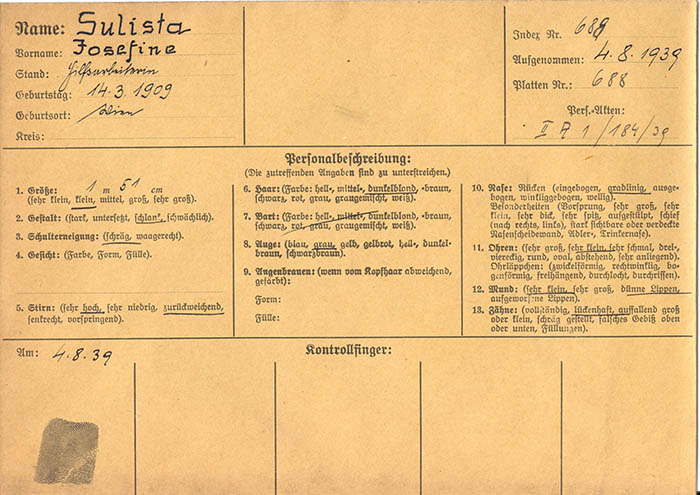 Name: Sulista
Vorname: Josefine
Stand: Hilfsarbeiterin
Geburtstag: 14.3.1909
Geburtsort: Wien
Kreis:
Index Nr. 689
Aufgenommen: 4.8.1939
Platten Nr.: 688
Pers.-Akten:
II A 1/184/39
Personalbeschreibung:
(Die zutreffenden Angaben sind zu unterstreichen.)
1. Größe: 1 m 51 cm
(sehr klein, klein, mittel, groß, sehr groß).
2. Gestalt: (stark, untersetzt, schlank, schwächlich).
3. Schulterneigung: (schräg, waagerecht).
4. Gesicht: (Farbe, Form, Fülle).
5. Stirn: (sehr hoch, sehr niedrig, zurückweichend,
senkrecht, vorspringend).
6. Haar: (Farbe: hell-, mittel-, dunkelblond, -braun,
schwarz, rot, grau, graugemischt, weiß).
7. Bart: (Farbe: hell-, mittel-, dunkelblond, -braun,
schwarz, rot, grau, graugemischt, weiß).
8. Auge: (blau, grau, gelb, gelbrot, hell-, dunkel-
braun, schwarzbraun).
9. Augenbrauen: (wenn vom Kopfhaar abweichend,
gefärbt):
Form:
Fülle:
10. Nase: Rücken (eingebogen, gradlinig, ausge-
bogen, winkliggebogen, wellig).
Besonderheiten (Vorsprung, sehr groß, sehr
klein, sehr dick, sehr spitz, aufgestülpt, schief
(nach rechts, links), stark sichtbare oder verdeckte
Nasenscheidewand, Adler-, Trinkernase).
11. Ohren: (sehr groß, sehr klein, sehr schmal, drei-,
viereckig, rund, oval, abstehend, sehr anliegend).
Ohrläppchen: (zwickelförmig, rechtwinklig, bo-
genförmig, freihängend, durchlocht, durchrissen).
12. Mund: (sehr klein, sehr groß, dünne Lippen,
aufgeworfene Lippen).
13. Zähne: (vollständig, lückenhaft, auffallend groß
oder klein, schräg gestellt, falsches Gebiß oben
oder unten, Füllungen).
Am: 4.8.39
Kontrollfinger: